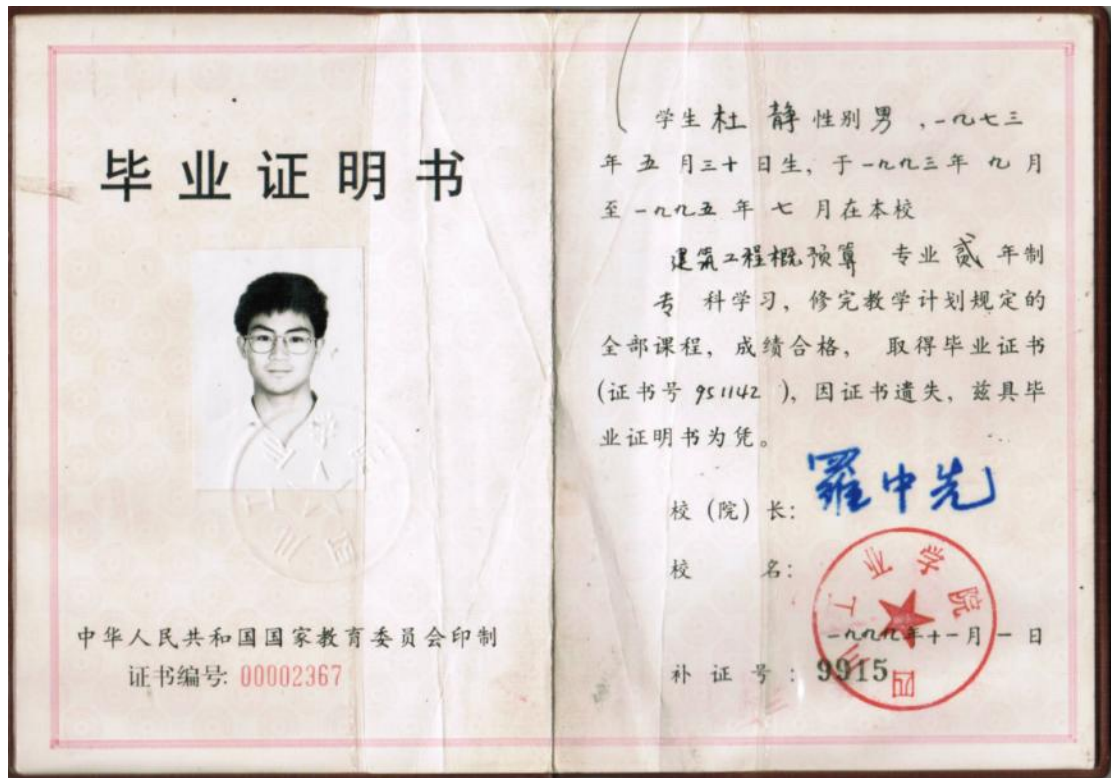 毕业证明书
中华人民共和国国家教育委员会印制
证书编号: 00002367
学生杜 静性别男,一九七三
年五月三十日生,于一九九三年 九月
至一九九五年 七 月在本校
建筑工程概预算 专业贰年制
专 科学习,修完教学计划规定的
全部课程,成绩合格, 取得毕业证书
(证书号 951142 ),因证书遗失,兹具毕
业证明书为凭。
校(院)长: 罗中先
校 名:
四川工业学院
一九九九年十一月一日
补 证 号 : 9915